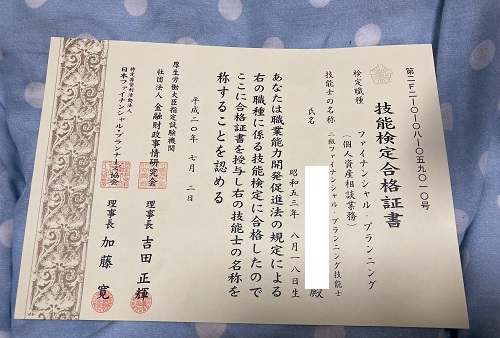 第二F二一〇一〇八一〇五九〇一〇号
技能検定合格証書
検定職種 ファイナンシャル・プランニング
(個人資産相談業務)
技能士の名称 二級ファイナンシャル・プランニング技能士
氏名 殿
昭和五三年 八月一八日生
あなたは職業能力開発促進法の規定による
右の職種に係る技能検定に合格したので
ここに合格証書を授与し右の技能士の名称を
称することを認める
平成二〇年 七月 二日
厚生労働大臣指定試験機関
社団法人 金融財政事情研究会 理事長 吉田正輝
特定非営利活動法人
日本ファイナンシャル・プランナーズ協会 理事長 加藤寛